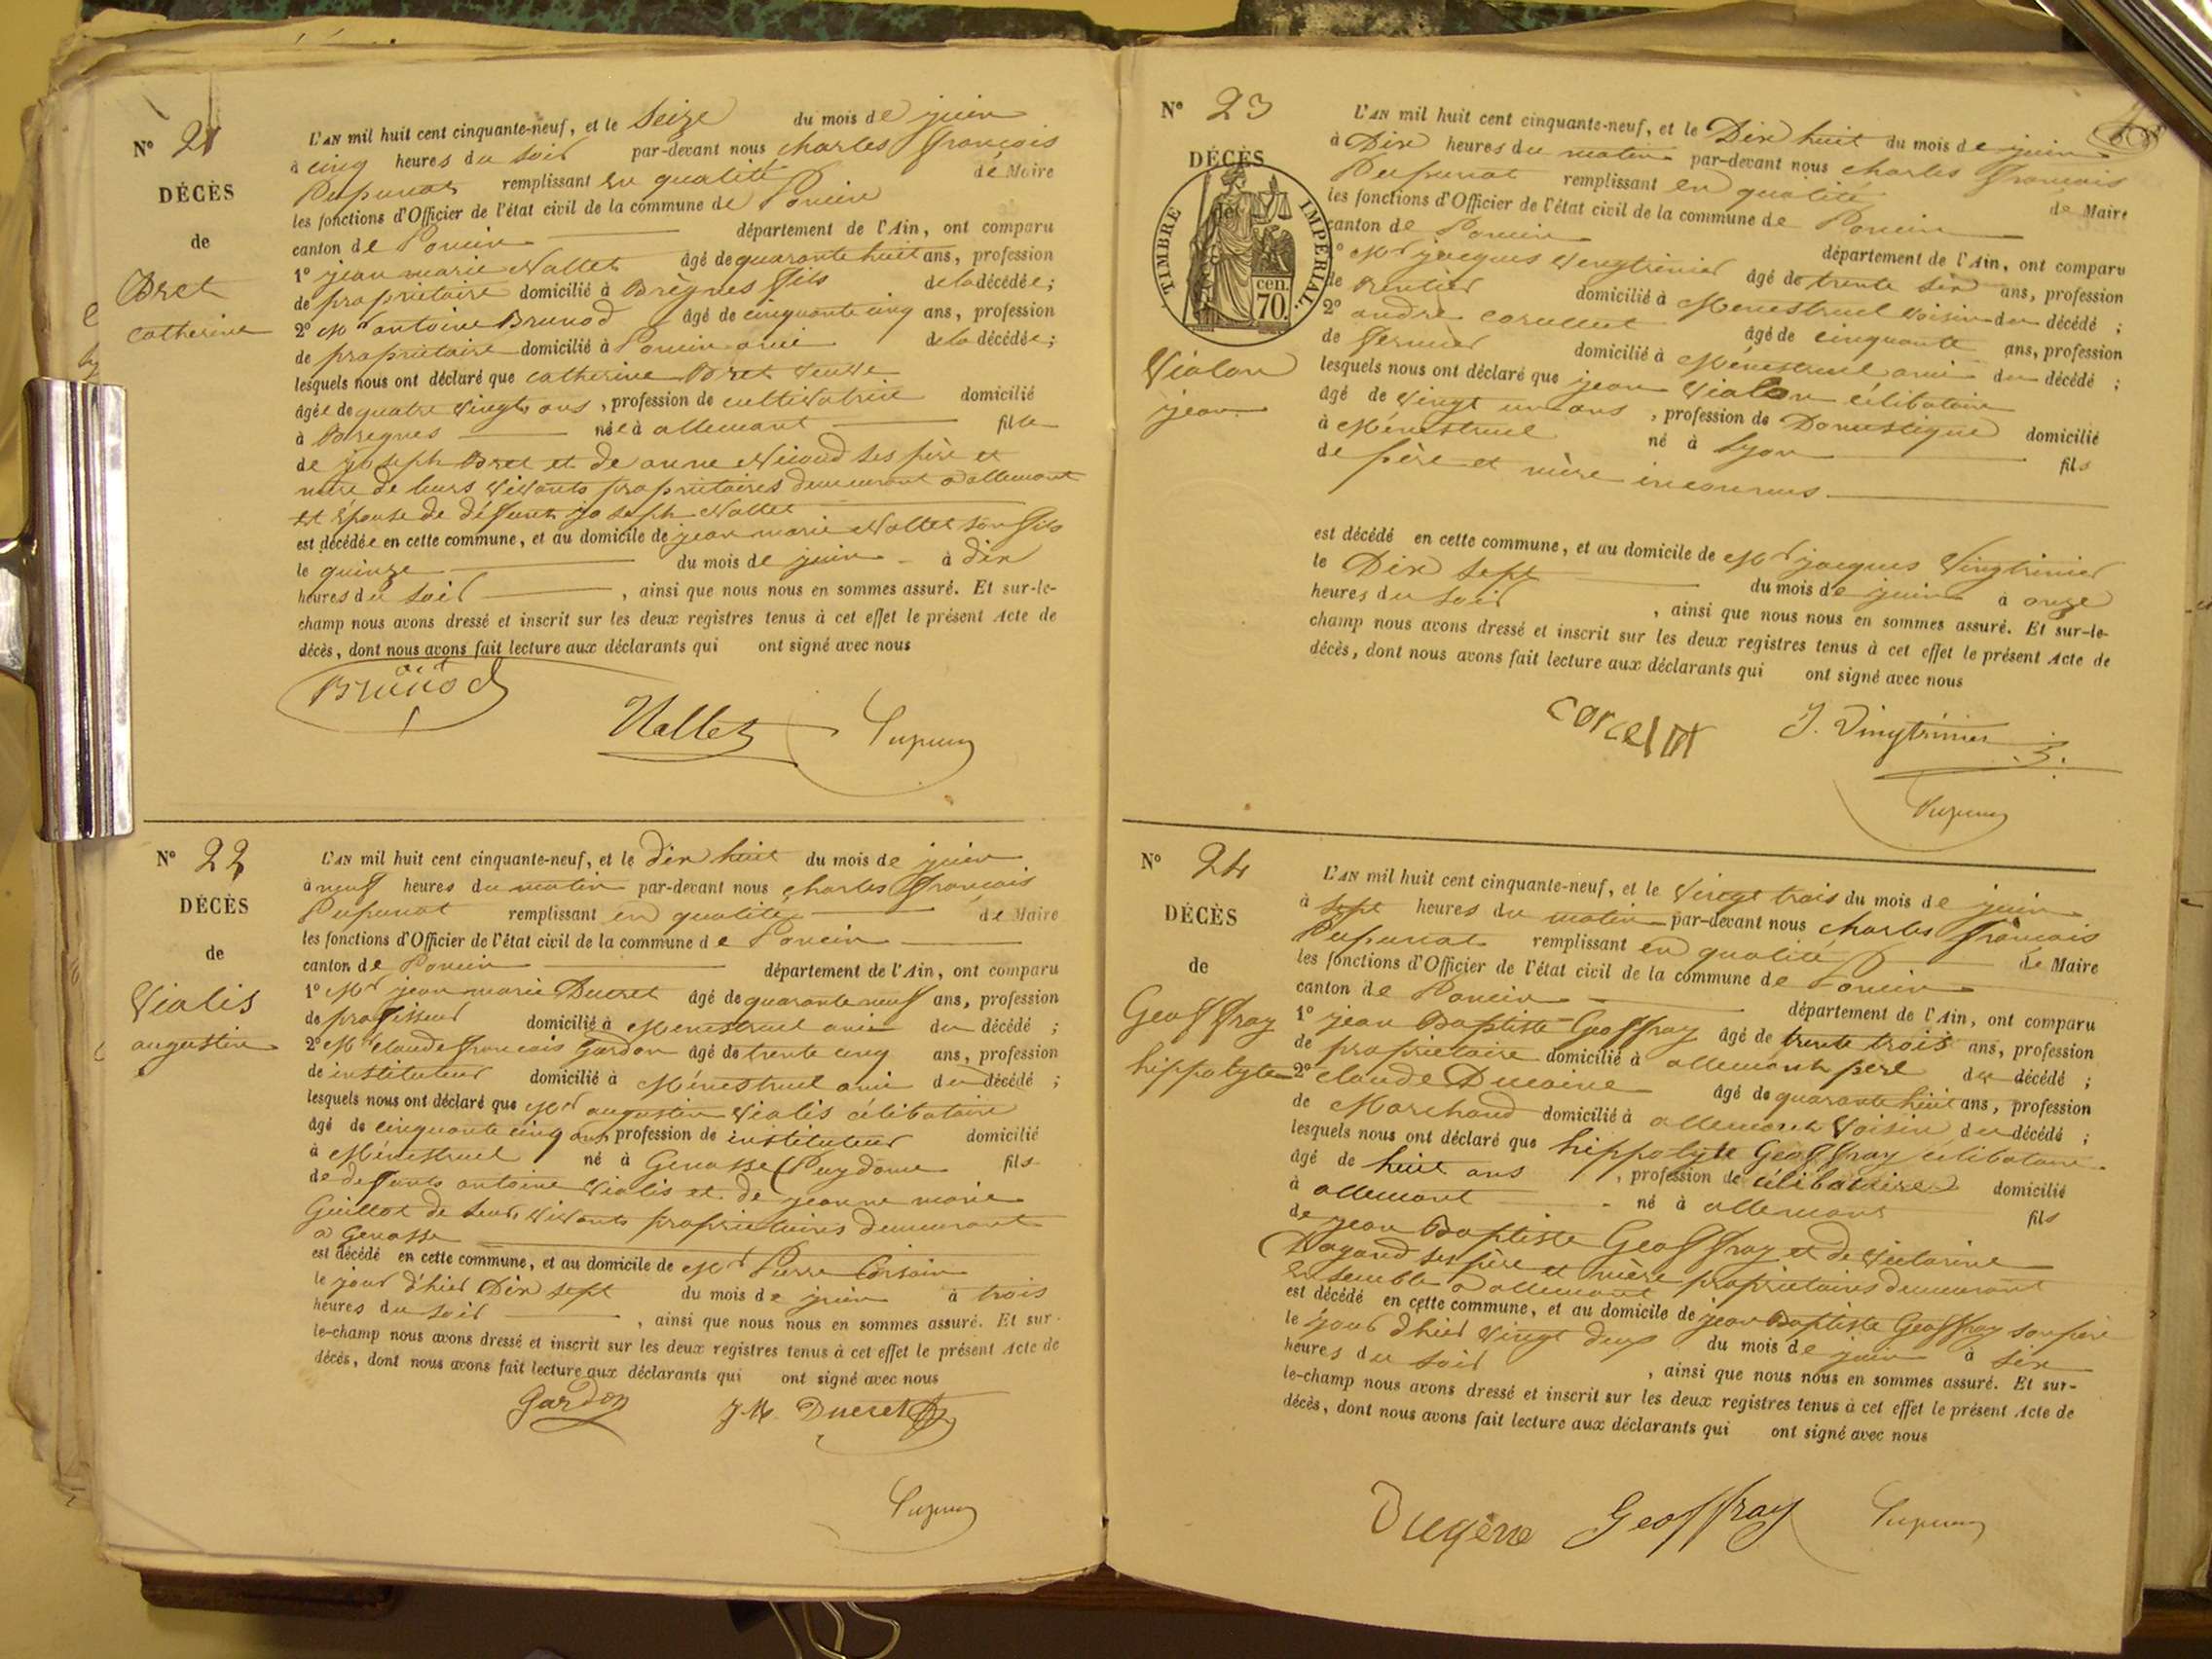 N° 21
DÉCÈS
de
Bret
catherine
L'AN mil huit cent cinquante-neuf, et le Seize du mois de juin
à cinq heures du soir par-devant nous charles françois
Pupunat remplissant en qualité de Maire
les fonctions d'Officier de l'état civil de la commune de Poncin
canton de Poncin département de l'Ain, ont comparu
1° jean marie Nallet âgé de quarante huit ans, profession
de proprietaire domicilié à Brègnes fils de la décédée;
2° Mr antoine Brunod âgé de cinquante cinq ans, profession
de propriétaire domicilié à Poncin ami de la décédée;
lesquels nous ont déclaré que catherine Bret veuve
âgée de quatre vingts ans, profession de cultivatrice domicilié
à Bregnes née à allemant fille
de joseph Bret et de anne Nicoud ses père et
mère de leurs vivants propriétaires demeurant a allemant
et épouse de défunt joseph Nallet
est décédée en cette commune, et au domicile de jean marie Nallet son fils
le quinze du mois de juin à dix
heures du soir, ainsi que nous nous en sommes assuré. Et sur-le-
champ nous avons dressé et inscrit sur les deux registres tenus à cet effet le présent Acte de
décès, dont nous avons fait lecture aux déclarants qui ont signé avec nous
Brunod
Nallet
N° 22
DÉCÈS
de
Vialis
augustin
L'AN mil huit cent cinquante-neuf, et le dix huit du mois de juin
à neuf heures du matin par-devant nous charles françois
Pupunat remplissant en qualité de Maire
les fonctions d'Officier de l'état civil de la commune de Poncin
canton de Poncin département de l'Ain, ont comparu
1° Mr jean marie Ducret âgé de quarante neuf ans, profession
de professeur domicilié à Menestruel ami du décédé;
2° Mr claude francois Gardon âgé de trente cinq ans, profession
de instituteur domicilié à Ménestruel ami du décédé;
lesquels nous ont déclaré que Mr augustin Vialis célibataire
âgé de cinquante cinq ans, profession de instituteur domicilié
à Ménestruel né à Genasse (Puydome fils
de defunts antoine Vialis et de jeanne marie
Guillot de leur vivants propriétaires demeurant
a Genasse
est décédé en cette commune, et au domicile de Mr Pierre
le jour d'hier Dix sept du mois de juin à trois
heures du soir, ainsi que nous nous en sommes assuré. Et sur-
le-champ nous avons dressé et inscrit sur les deux registres tenus à cet effet le présent Acte de
décès, dont nous avons fait lecture aux déclarants qui ont signé avec nous
Gardon J.M. Ducret
N° 23
DÉCÈS
de
TIMBRE IMPÉRIAL.
cen.
70.
Vialon
jean
L'AN mil huit cent cinquante-neuf, et le Dix huit du mois de juin
à Dix heures du matin par-devant nous charles francois
Pupunat remplissant en qualité de Maire
les fonctions d'Officier de l'état civil de la commune de Poncin
canton de Poncin département de l'Ain, ont comparu
1° Mr jacques Vingtrinier âgé de trente six ans, profession
de rentier domicilié à Menestruel voisin du décédé;
2° andré âgé de cinquante ans, profession
de fermier domicilié à Ménestruel ami du décédé;
lesquels nous ont déclaré que jean Vialon célibataire
âgé de vingt un ans, profession de Domestique domicilié
à Ménestruel né à Lyon fils
de père et mère inconnus
est décédé en cette commune, et au domicile de Mr jacques Vingtrinier
le Dix sept du mois de juin à onze
heures du soir, ainsi que nous nous en sommes assuré. Et sur-le-
champ nous avons dressé et inscrit sur les deux registres tenus à cet effet le présent Acte de
décès, dont nous avons fait lecture aux déclarants qui ont signé avec nous
J. Vingtrinier
N° 24
DÉCÈS
de
Geoffray
hippolyte
L'AN mil huit cent cinquante-neuf, et le vingt trois du mois de juin
à sept heures du matin par-devant nous charles françois
Pupunat remplissant en qualité de Maire
les fonctions d'Officier de l'état civil de la commune de Poncin
canton de Poncin département de l'Ain, ont comparu
1° jean Baptiste Geoffray âgé de trente trois ans, profession
de propriétaire domicilié à allemant père du décédé;
2° claude âgé de quarante huit ans, profession
de Marchand domicilié à allemant voisin du décédé;
lesquels nous ont déclaré que hippolyte Geoffray célibataire
âgé de huit ans, profession de célibataire domicilié
à allemant né à allemant fils
de jean Baptiste Geoffray et de victorine
ses père et mère proprietaires demeurant
ensemble a allemant
est décédé en cette commune, et au domicile de jean Baptiste Geoffray son père
le jour d'hier vingt deux du mois de juin à six
heures du soir, ainsi que nous nous en sommes assuré. Et sur-
le-champ nous avons dressé et inscrit sur les deux registres tenus à cet effet le présent Acte de
décès, dont nous avons fait lecture aux déclarants qui ont signé avec nous
Geoffray